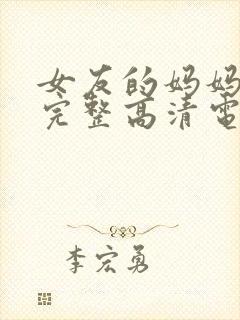 女友的妈妈
完整高清电
李宏勇